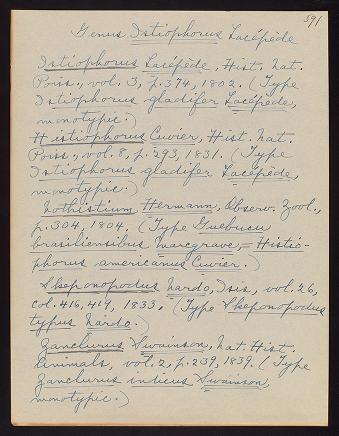 591
Genus Istiophorus Lacépède
Istiophorus Lacépède, Hist. Nat.
Poiss., vol. 3, p. 374, 1802. (Type
Istiophorus gladifer Lacépède,
monotypic.)
Histiophorus Cuvier, Hist. Nat.
Poiss., vol. 8, p. 293, 1831. (Type
Istiophorus gladifer Lacépède,
monotypic.)
Nothistium Hermann, Observ. Zool.,
p. 304, 1804. (Type Guebucu
brasiliensibus Marcgrave, = Histio-
phorus americanus Cuvier.)
Skeponopodus Nardo, Isis, vol. 26,
col. 416, 419, 1833. (Type Skeponopodus
typus Nardo.)
Zanclurus Swainson, Nat. Hist.
Animals, vol. 2, p. 239, 1839. (Type
Zanclurus indicus Swainson,
monotypic.)